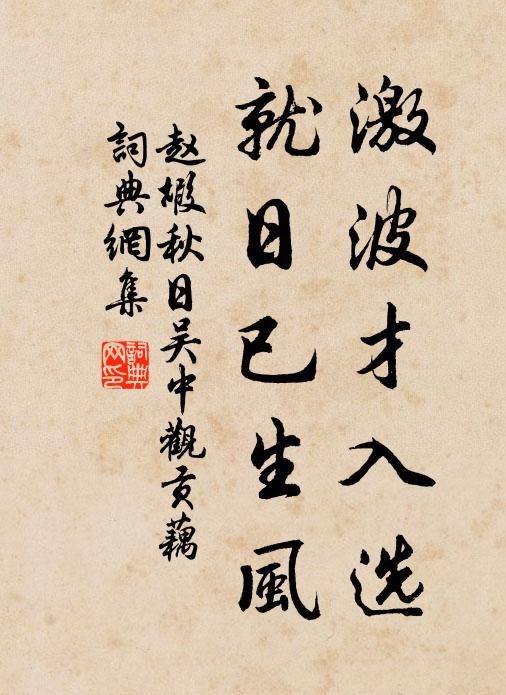 激波才入选
就日已生風
赵嘏秋日吴中觀貢藕
詞典網集
詞典网印